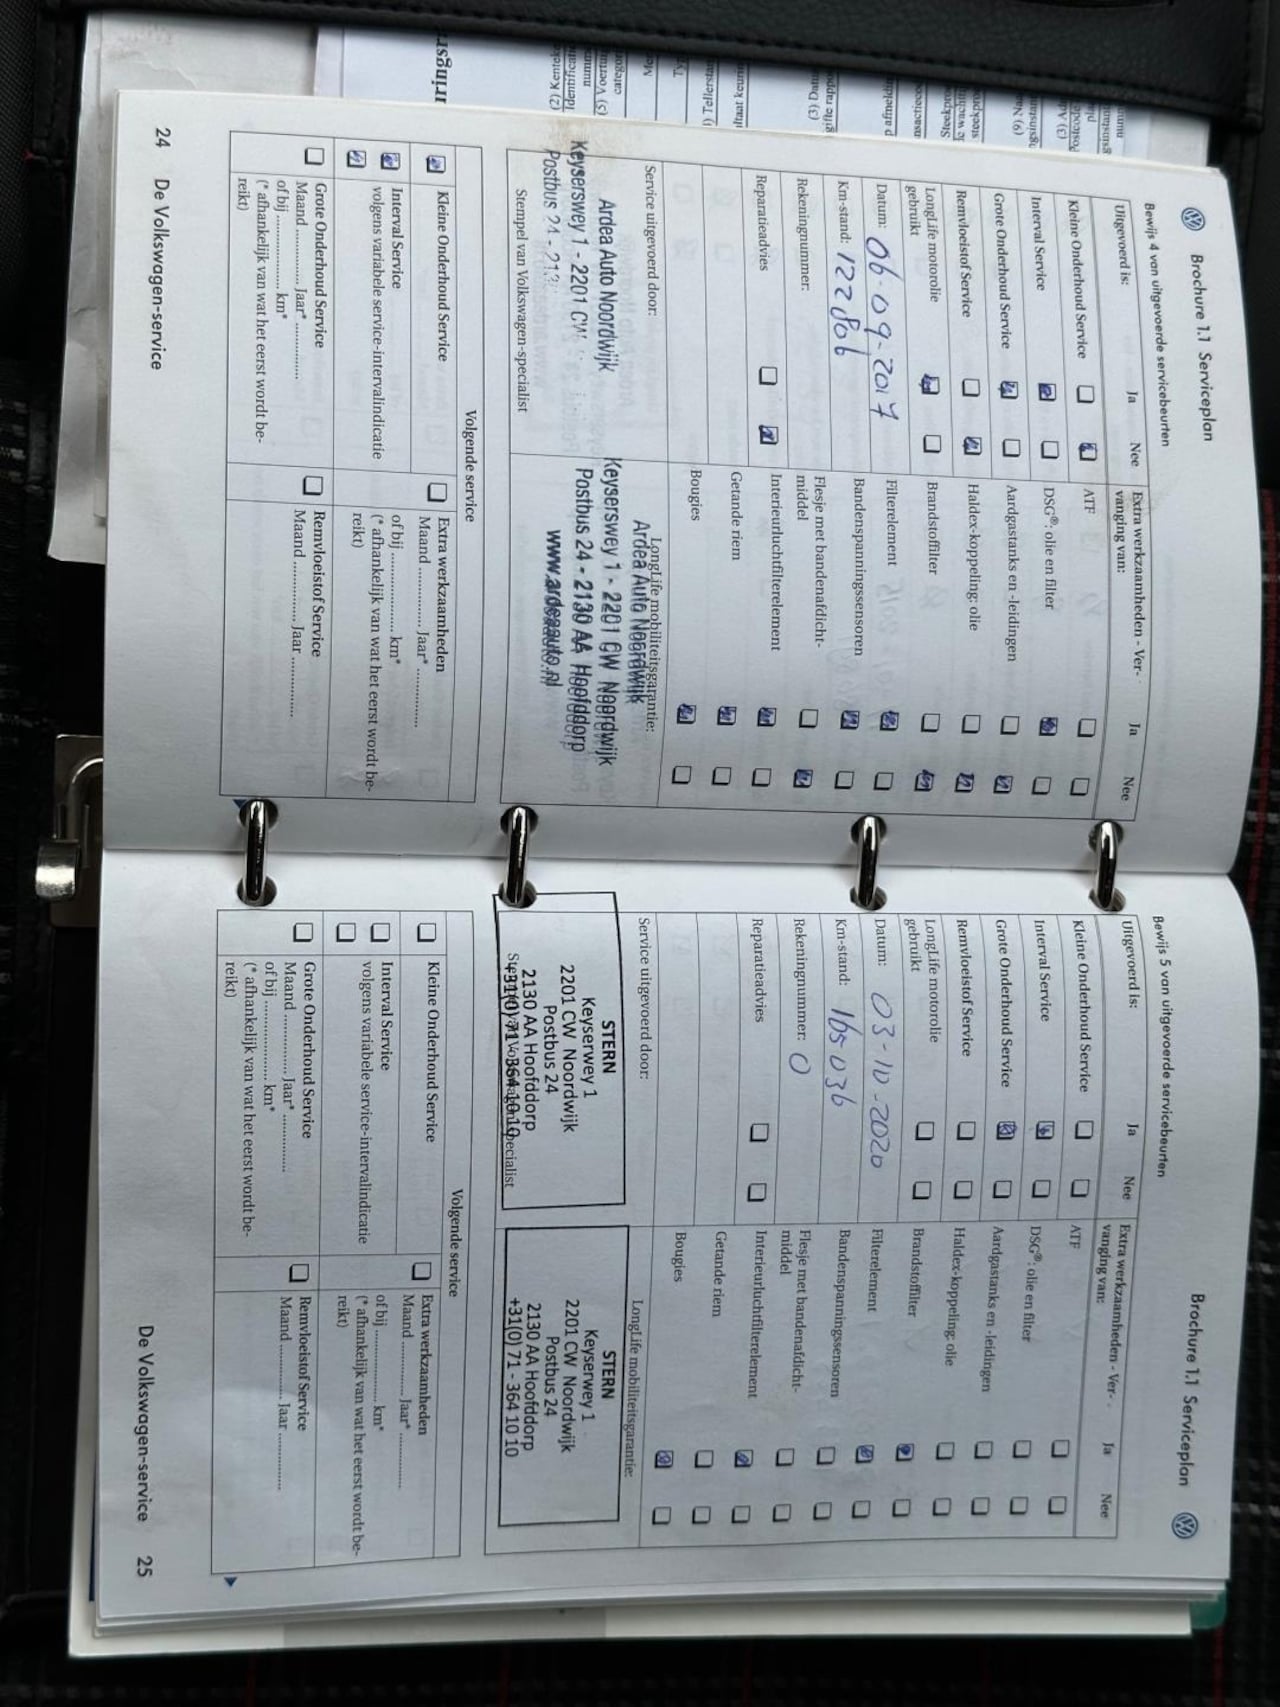 Brochure 1.1 Serviceplan
Bewijs 4 van uitgevoerde servicebeurten
Uitgevoerd is: Ja Nee
Kleine Onderhoud Service
Interval Service
Grote Onderhoud Service
Remvloeistof Service
LongLife motorolie
gebruikt
Datum: 06-09-2017
Km-stand: 122806
Rekeningnummer:
Reparatieadvies
Extra werkzaamheden - Ver-
vanging van: Ja Nee
ATF
DSG®: olie en filter
Aardgastanks en -leidingen
Haldex-koppeling: olie
Brandstoffilter
Filterelement
Bandenspanningssensoren
Flesje met bandenafdicht-
middel
Interieurluchtfilterelement
Getande riem
Bougies
Service uitgevoerd door:
Ardea Auto Noordwijk
Keyserswey 1 - 2201 CW
Postbus 24 - 213
Stempel van Volkswagen-specialist
LongLife mobiliteitsgarantie:
Ardea Auto Noordwijk
Keyserswey 1 - 2201 CW Noordwijk
Postbus 24 - 2130 AA Hoofddorp
www.ardeaauto.nl
Volgende service
Kleine Onderhoud Service
Interval Service
volgens variabele service-intervalindicatie
Grote Onderhoud Service
Maand ............ Jaar* ............
of bij ............ km*
(* afhankelijk van wat het eerst wordt be-
reikt)
Extra werkzaamheden
Maand ............ Jaar* ............
of bij ............ km*
(* afhankelijk van wat het eerst wordt be-
reikt)
Remvloeistof Service
Maand ............ Jaar ............
24 De Volkswagen-service
Brochure 1.1 Serviceplan
Bewijs 5 van uitgevoerde servicebeurten
Uitgevoerd is: Ja Nee
Kleine Onderhoud Service
Interval Service
Grote Onderhoud Service
Remvloeistof Service
LongLife motorolie
gebruikt
Datum: 03-10-2020
Km-stand: 165036
Rekeningnummer: 0
Reparatieadvies
Extra werkzaamheden - Ver-
vanging van: Ja Nee
ATF
DSG®: olie en filter
Aardgastanks en -leidingen
Haldex-koppeling: olie
Brandstoffilter
Filterelement
Bandenspanningssensoren
Flesje met bandenafdicht-
middel
Interieurluchtfilterelement
Getande riem
Bougies
Service uitgevoerd door:
STERN
Keyserwey 1
2201 CW Noordwijk
Postbus 24
2130 AA Hoofddorp
+31(0) 71 - 364 10 10
Stempel van Volkswagen-specialist
LongLife mobiliteitsgarantie:
STERN
Keyserwey 1
2201 CW Noordwijk
Postbus 24
2130 AA Hoofddorp
+31(0) 71 - 364 10 10
Volgende service
Kleine Onderhoud Service
Interval Service
volgens variabele service-intervalindicatie
Grote Onderhoud Service
Maand ............ Jaar* ............
of bij ............ km*
(* afhankelijk van wat het eerst wordt be-
reikt)
Extra werkzaamheden
Maand ............ Jaar* ............
of bij ............ km*
(* afhankelijk van wat het eerst wordt be-
reikt)
Remvloeistof Service
Maand ............ Jaar ............
De Volkswagen-service 25